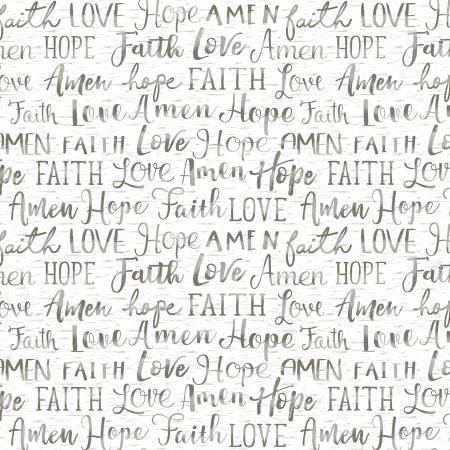 faith LOVE Hope AMEN faith LOVE Hope
Amen HOPE Faith Love Amen HOPE Faith
Love Amen hope FAITH Love Amen hope
Faith Love Amen Hope Faith Love Amen
AMEN FAITH Love Hope AMEN FAITH Love
Hope FAITH Love Amen Hope FAITH Love
Amen Hope Faith LOVE Amen Hope
faith LOVE Hope AMEN faith LOVE Hope
Amen HOPE Faith Love Amen HOPE Faith
Love Amen hope FAITH Love Amen hope
Faith Love Amen Hope Faith Love Amen
AMEN FAITH Love Hope AMEN FAITH Love
Hope FAITH Love Amen Hope FAITH Love
Amen Hope Faith LOVE Amen Hope